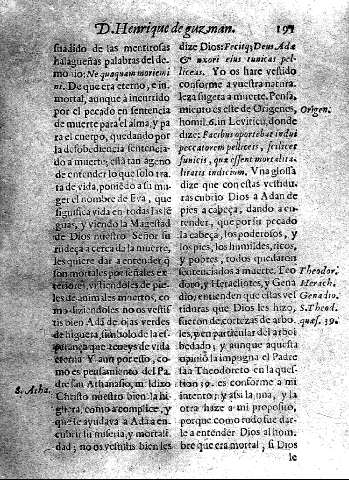 D. Henrique de guzman. 191
suadido de las mentirosas
halagueñas palabras del de-
monio: Ne quaquam moriemi
ni. De que era eterno, e in-
mortal, aunque à incurrido
por el pecado en sentencia
de muerte para el alma, y pa
ra el cuerpo, quedando por
la desobediencia sentencia-
do a muerte; està tan ageno
de entender lo que solo tra-
ta de vida, poniēdo a su mu-
ger el nombre de Eva, que
significa vida en todas las lē
guas, y viendo la Magestad
de Dios nuestro Señor su
rudeza cerca de la muerte,
les quiere dar a entender q̄
son mortales por señales ex
teriores, vistiendoles de pie-
les de animales muertos, co-
mo diziendoles no os vestis
bien Adā de ojas verdes
de higuera, simbolo de la es-
perança que teneys de vida
eterna Y aun por esto, co-
mo es pensamiento del Pa-
dre san Athanasio, maldizo
Christo nuestro bien la hi-
guera, como a complice, y
que le ayudava a Ada a en-
cubrir su miseria, y mortali-
dad; no os vestis bien les
S. Atha.
dize Dios: Fecitq; Deus Adæ
& uxori eius tunicas pel-
liceas. Yo os hare vestido
conforme a vuestra natura
leza sugeta a muerte. Pensa
miento es este de Origenes,
homil. 6. in Leviticū, donde
dize: Facibus oportebat indui
peccatorem pelliceis, scilicet
tunicis, quæ essent mortalita-
litatis indicium. Vna glossa
dize que con estas vestidu-
ras cubrio Dios a Adan de
pies a cabeça, dando a en-
tender, que por su pecado
la cabeça, los poderosos, y
los pies, los humildes, ricos,
y pobres, todos quedaron
sentenciados a muerte. Teo
doro, y Heracliotes, y Gena
dio, entienden que estas ves
tiduras que Dios les hizo,
fueron de cortezas de arbo-
les, y en particular del arbol
bedado; y aunque aquesta
opiniō la impugna el Padre
san Theodoreto en la ques-
tion 39. es conforme a mi
intento; y assi la una, y la
otra haze a mi proposito,
porque como todo fue dar-
le a entender Dios al hom-
bre que era mortal, si Dios
le
Origen.
Theodor.
Herach.
Genadio.
S. Theod.
quæs. 39.